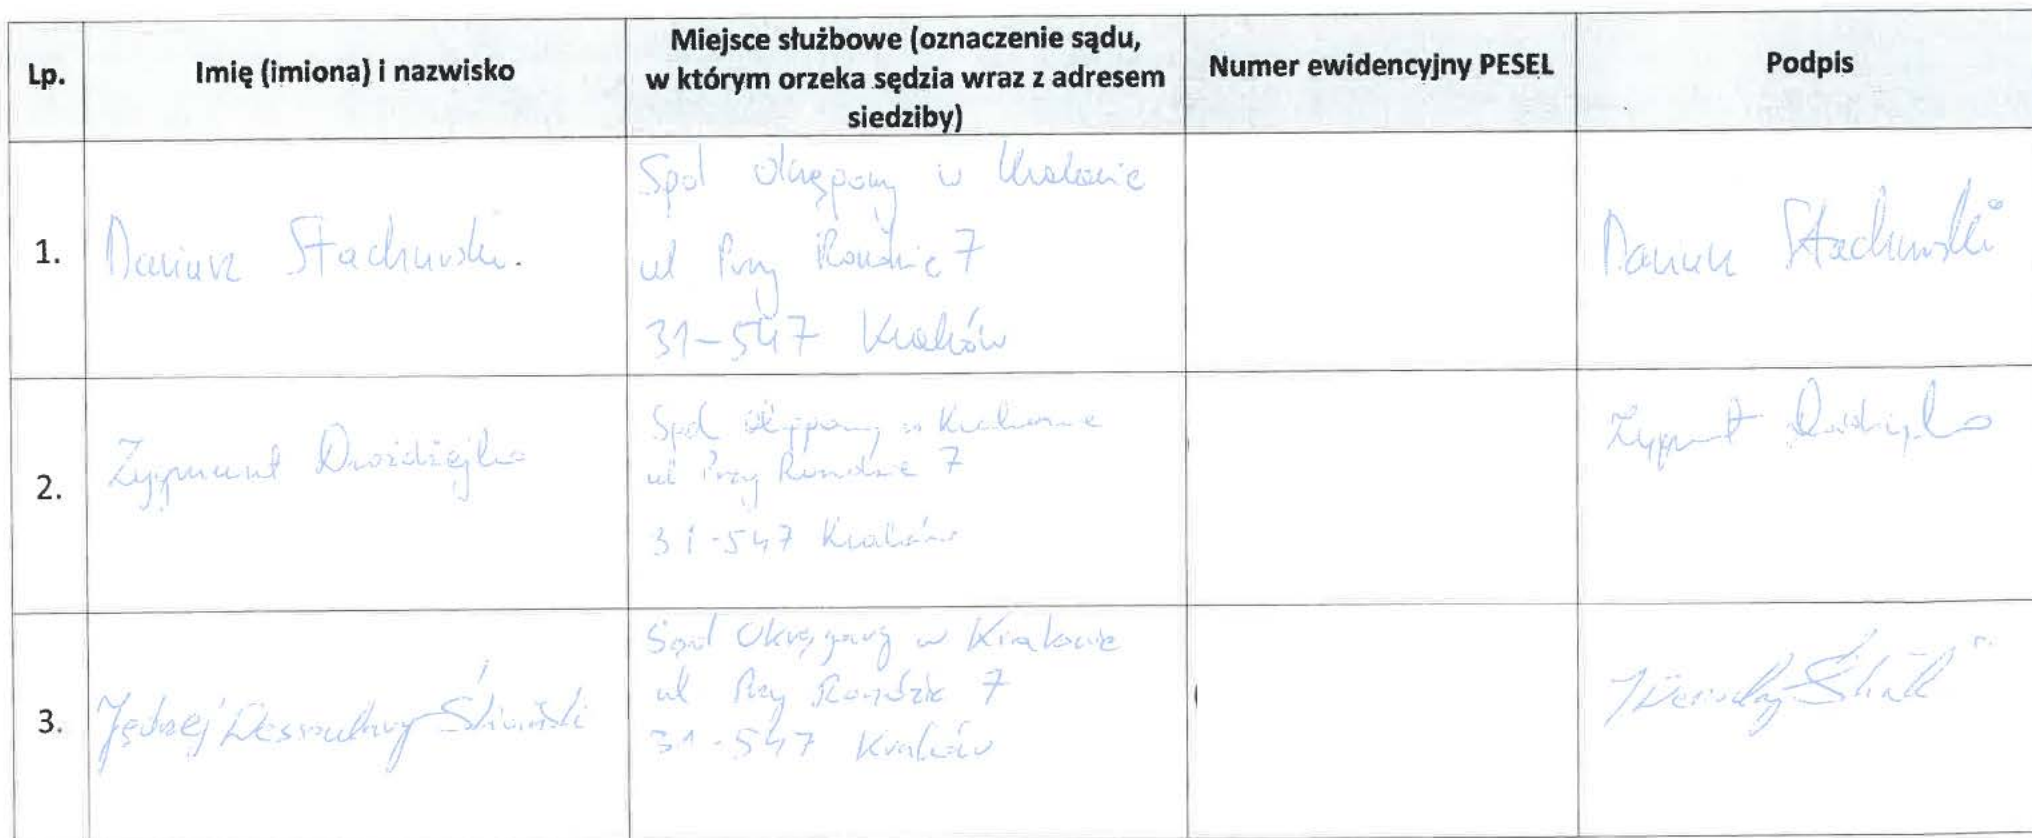 Lp.
Imię (imiona) i nazwisko
Miejsce służbowe (oznaczenie sądu,
w którym orzeka sędzia wraz z adresem
siedziby)
Numer ewidencyjny PESEL
Podpis
1.
Dariusz Stachurski.
Sąd Okręgowy w Krakowie
ul Przy Rondzie 7
31-547 Kraków
Dariusz Stachurski
2.
Zygmunt Drożdżejko
Sąd Okręgowy w Krakowie
ul Przy Rondzie 7
31-547 Kraków
Zygmunt Drożdżejko
3.
Jędrzej Dessoulavy Śliwiński
Sąd Okręgowy w Krakowie
ul Przy Rondzie 7
31-547 Kraków